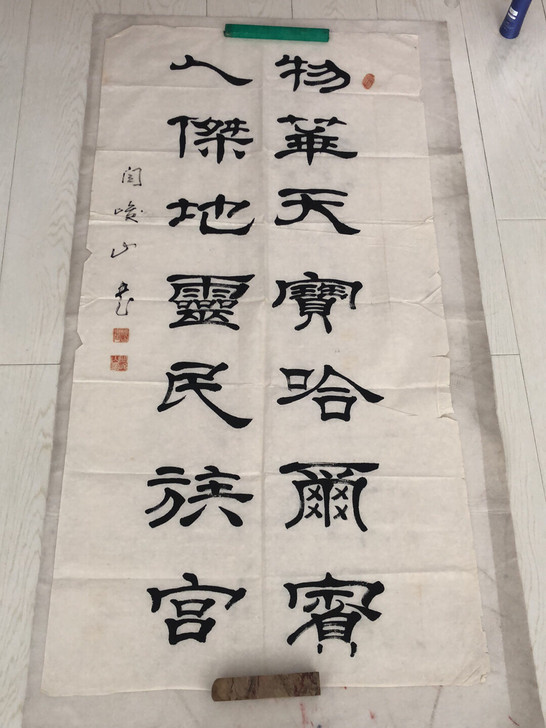 物華天寶哈爾賓
人傑地靈民族宮
閆峻山書